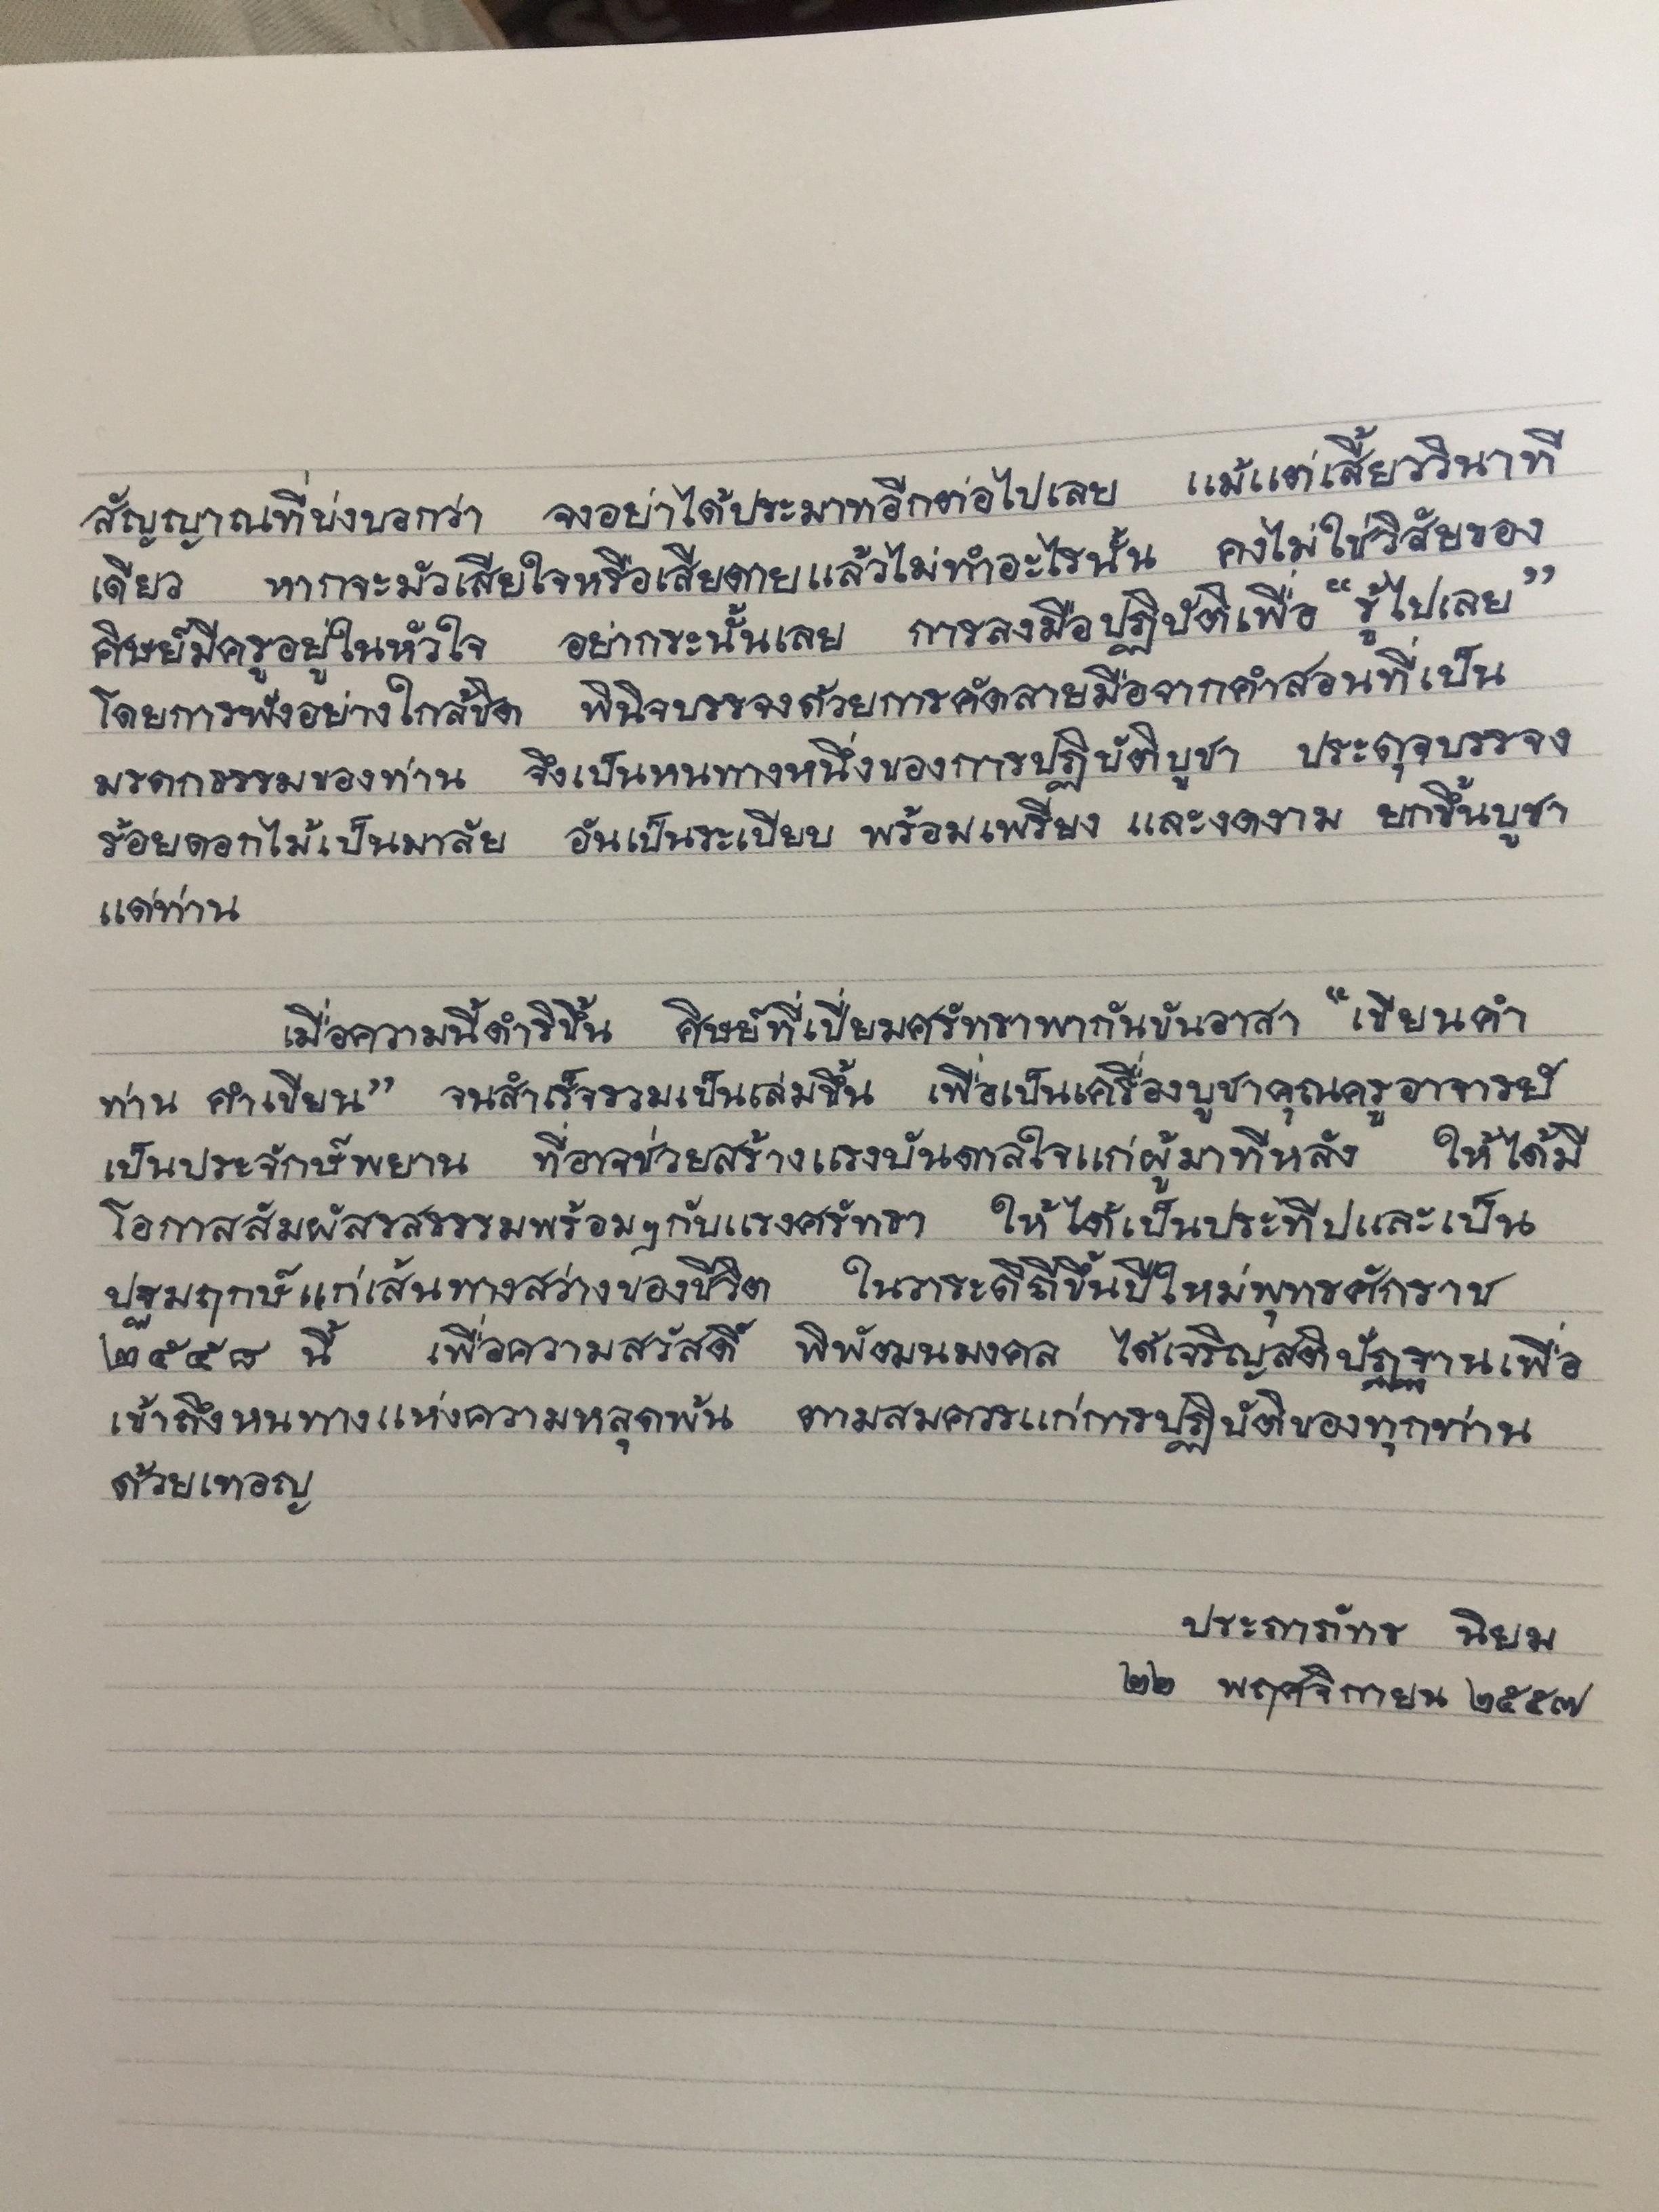 สัญญาณที่บ่งบอกว่า จงอย่าได้ประมาทอีกต่อไปเลย แม้แต่เสี้ยววินาที
เดียว หากจะมัวเสียใจหรือเสียดายแล้วไม่ทำอะไรนั้น คงไม่ใช่วิสัยของ
ศิษย์มีครูอยู่ในหัวใจ อย่ากระนั้นเลย การลงมือปฏิบัติเพื่อ “รู้ไปเลย”
โดยการฟังอย่างใกล้ชิด พินิจบรรจงด้วยการคัดลายมือจากคำสอนที่เป็น
มรดกธรรมของท่าน จึงเป็นหนทางหนึ่งของการปฏิบัติบูชา ประดุจบรรจง
ร้อยดอกไม้เป็นมาลัย อันเป็นระเบียบ พร้อมเพรียง และงดงาม ยกขึ้นบูชา
แด่ท่าน
เมื่อความนี้ดำริขึ้น ศิษย์ที่เปี่ยมศรัทธาพากันขันอาสา “เขียนคำ
ท่าน คำเขียน” จนสำเร็จรวมเป็นเล่มขึ้น เพื่อเป็นเครื่องบูชาคุณครูอาจารย์
เป็นประจักษ์พยาน ที่อาจช่วยสร้างแรงบันดาลใจแก่ผู้มาทีหลัง ให้ได้มี
โอกาสสัมผัสรสธรรมพร้อมๆกับแรงศรัทธา ให้ได้เป็นประทีปและเป็น
ปฐมฤกษ์แก่เส้นทางสว่างของชีวิต ในวาระดิถีขึ้นปีใหม่พุทธศักราช
๒๕๕๘ นี้ เพื่อความสวัสดิ์ พิพัฒนมงคล ได้เจริญสติปัฏฐานเพื่อ
เข้าถึงหนทางแห่งความหลุดพ้น ตามสมควรแก่การปฏิบัติของทุกท่าน
ด้วยเทอญ
ประภาภัทร นิยม
๒๒ พฤศจิกายน ๒๕๕๗